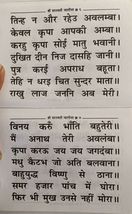 श्री सरस्वती चालीसा
तिन्ह न और रहेउ अवलम्बा।
केवल कृपा आपकी अम्बा॥
करहु कृपा सोई मातु भवानी।
दुखित दीन निज दासहि जानी॥
पुत्र करई अपराध बहुता।
तेहि न धरइ चित सुन्दर माता॥
राखु लाज जननि अब मेरी।
श्री सरस्वती चालीसा
विनय करूँ भाँति बहुतेरी॥
मैं अनाथ तेरी अवलंबा।
कृपा करऊ जय जय जगदंबा॥
मधु कैटभ जो अति बलवाना।
बाहुयुद्ध विष्णु से ठाना॥
समर हजार पांच में घोरा।
फिर भी मुख उनसे नहीं मोरा॥